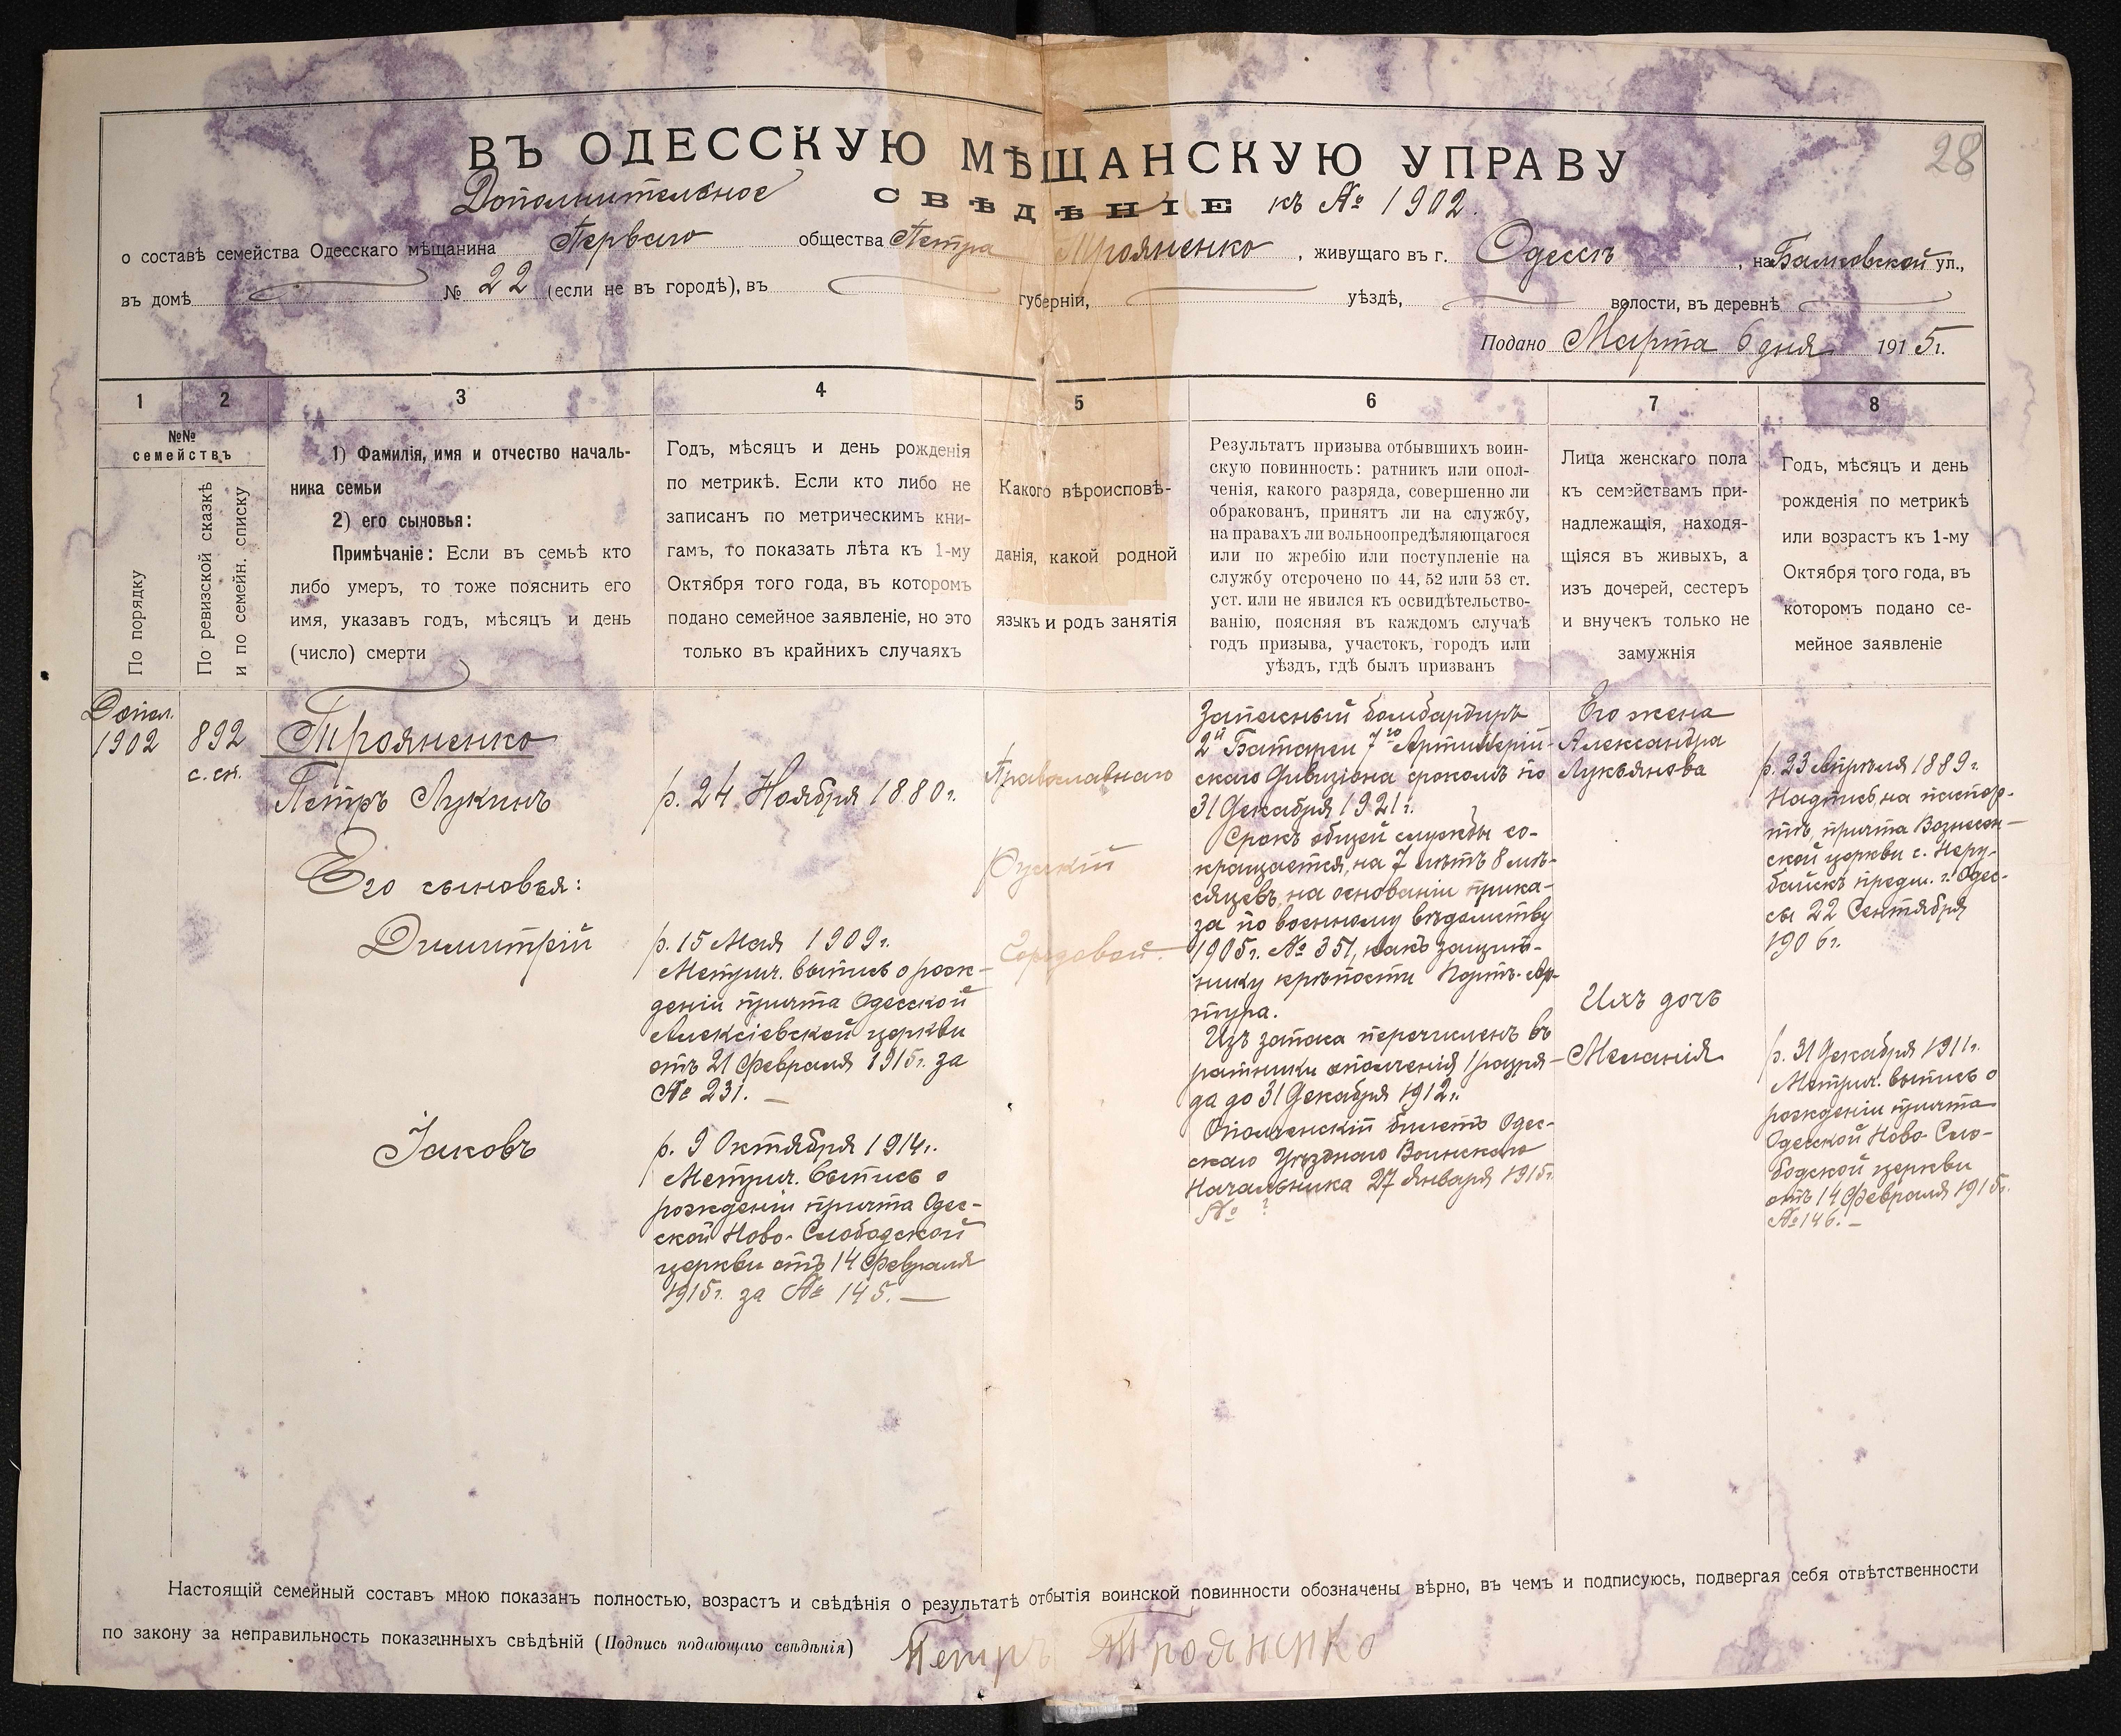 28
ВЪ ОДЕССКУЮ МѢЩАНСКУЮ УПРАВУ
Дополнительное СВѢДѢНІЕ къ № 1902.
о составѣ семейства Одесскаго мѣщанина Перваго общества Петра Трояненко, живущаго въ г. Одессѣ, на Балковской ул.,
въ домѣ № 22 (если не въ городѣ), въ губерніи, уѣздѣ, волости, въ деревнѣ
Подано Марта 6 дня 1915 г.
1
2
3
4
5
6
7
8
№№
семействъ
По порядку
По ревизской сказкѣ
и по семейн. списку
1) Фамилія, имя и отчество началь-
ника семьи
2) его сыновья:
Примѣчаніе: Если въ семьѣ кто
либо умеръ, то тоже пояснить его
имя, указавъ годъ, мѣсяцъ и день
(число) смерти
Годъ, мѣсяцъ и день рожденія
по метрикѣ. Если кто либо не
записанъ по метрическимъ кни-
гамъ, то показать лѣта къ 1-му
Октября того года, въ которомъ
подано семейное заявленіе, но это
только въ крайнихъ случаяхъ
Какого вѣроисповѣ-
данія, какой родной
языкъ и родъ занятія
Результатъ призыва отбывшихъ воин-
скую повинность: ратникъ или опол-
ченія, какого разряда, совершенно ли
обракованъ, принятъ ли на службу,
на правахъ ли вольноопредѣляющагося
или по жребію или поступленіе на
службу отсрочено по 44, 52 или 53 ст.
уст. или не явился къ освидѣтельство-
ванію, поясняя въ каждомъ случаѣ
годъ призыва, участокъ, городъ или
уѣздъ, гдѣ былъ призванъ
Лица женскаго пола
къ семействамъ при-
надлежащія, находя-
щіяся въ живыхъ, а
изъ дочерей, сестеръ
и внучекъ только не
замужнія
Годъ, мѣсяцъ и день
рожденія по метрикѣ
или возрастъ къ 1-му
Октября того года, въ
которомъ подано се-
мейное заявленіе
Допол.
1902
892
с. сп.
Трояненко
Петръ Лукинъ
Его сыновья:
Димитрій
Іаковъ
р. 24 Ноября 1880 г.
р. 15 Мая 1909 г.
Метрич. выпись о рож-
деніи причта Одесской
Алексіевской церкви
отъ 21 Февраля 1915 г. за
№ 231. —
р. 9 Октября 1914 г.
Метрич. выпись о
рожденіи причта Одес-
ской Ново-Слободской
церкви отъ 14 Февраля
1915 г. за № 145. —
Православнаго
Русскій
Городовой.
Запасный бомбардиръ
2й Батареи 7го Артиллерій-
скаго Дивизіона срокомъ по
31 Декабря 1921 г.
Срокъ общей службы со-
кращается, на 7 лѣтъ 8 мѣ-
сяцевъ, на основаніи прика-
за по военному вѣдомству
1905 г. № 351, какъ защит-
нику крѣпости Портъ-Ар-
тура.
Изъ запаса перечисленъ въ
ратники ополченія 1 разря-
да до 31 Декабря 1912 г.
Ополченскій билетъ Одес-
скаго Уѣзднаго Воинскаго
Начальника 27 Января 1915 г.
№ ?
Его жена
Александра
Лукьянова
Ихъ дочь
Меланія
р. 23 Апрѣля 1889 г.
Надпись, на паспор-
тѣ, причта Вознесен-
ской церкви с. Неру-
байскъ предм. г. Одес-
сы 22 Сентября
1906 г.
р. 31 Декабря 1911 г.
Метрич. выпись о
рожденіи причта
Одесской Ново-Сло-
бодской церкви
отъ 14 Февраля 1915 г.
№ 146. —
Настоящій семейный составъ мною показанъ полностью, возрастъ и свѣдѣнія о результатѣ отбытія воинской повинности обозначены вѣрно, въ чемъ и подписуюсь, подвергая себя отвѣтственности
по закону за неправильность показанныхъ свѣдѣній (Подпись подающаго свѣдѣнія) Петръ Трояненко